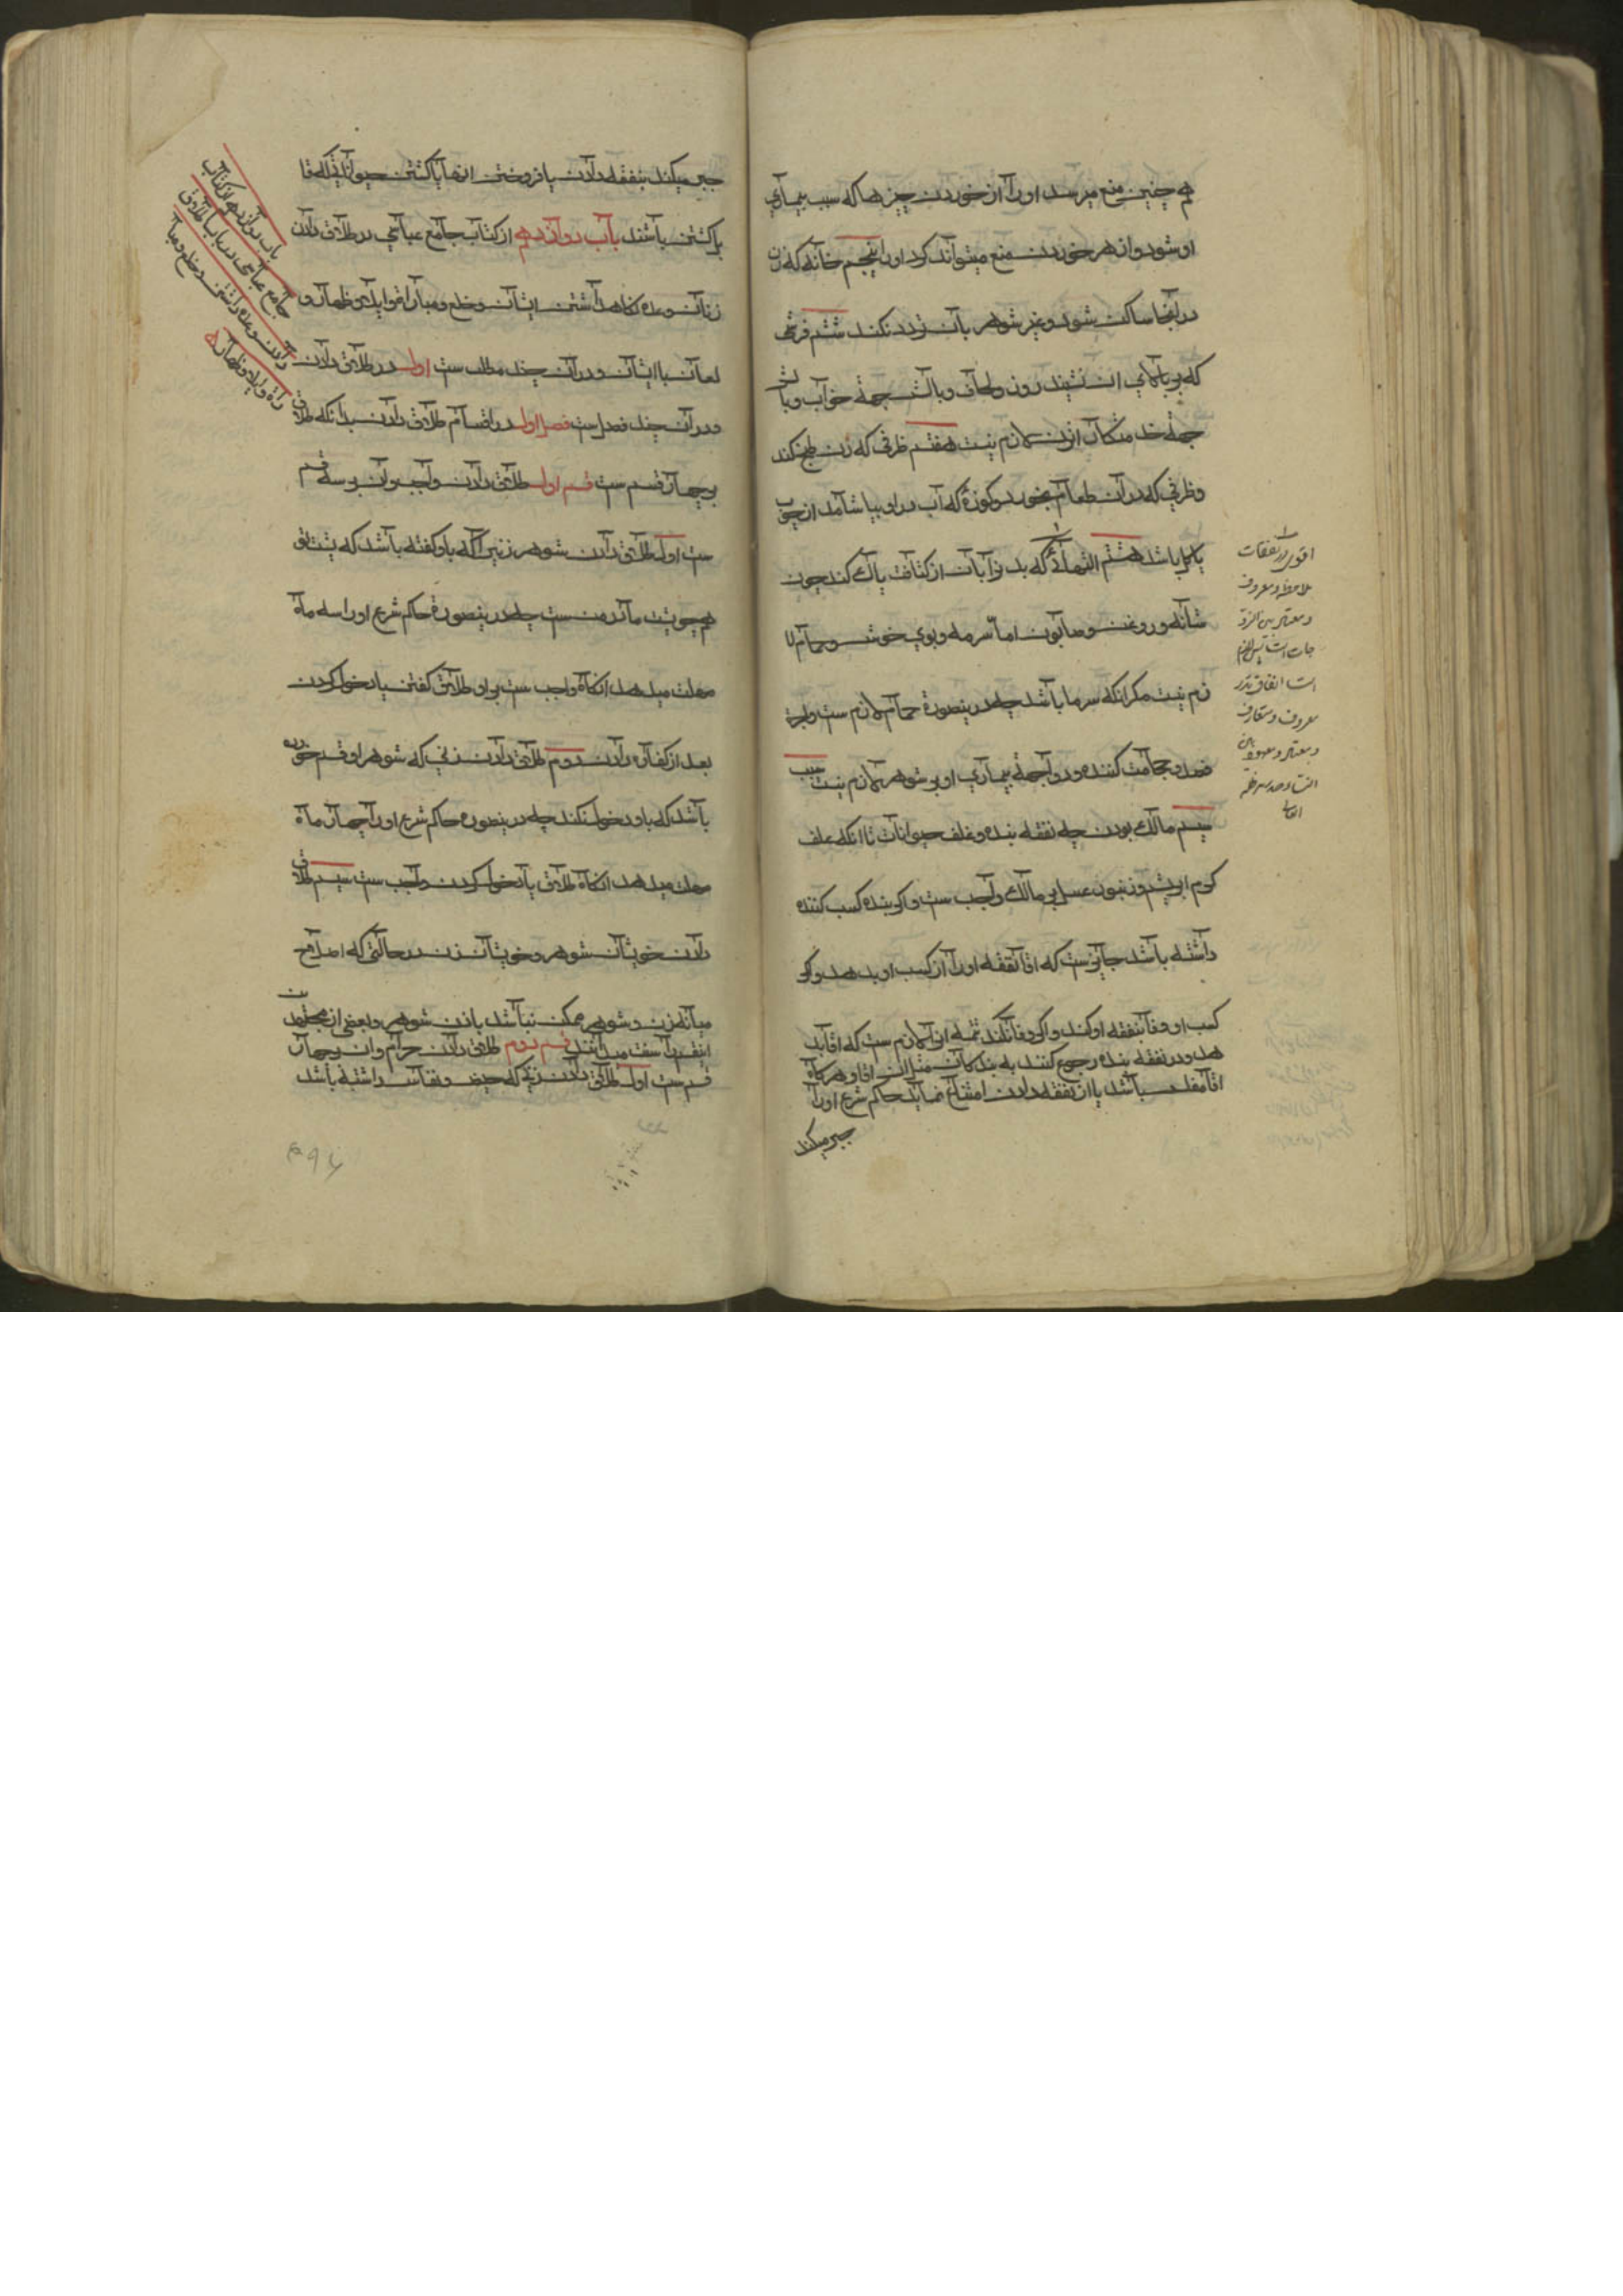 هم چنین منع میرسد او را از خوردن چیزها که سبب بیماری
او شود و از زهر خوردن منع میتواند کرد او را پنجم خانه که زن
در انجا ساکن شود و غیر شوهر بآن تردد نکند ششم فرشی
که بر بالای ان نشیند روز و لحاف و بالش جهة خواب و بالش
جهة خدمتکار ازن لازم نیست هفتم ظرفی که زن طبخ کند
و ظرفی که در آن طعام بخورد و کوزهٔ که آب در او بیاشامد از چوب
یا گل باشد هشتم الت ازالهٔ که بدن را بآن از کثافت پاک کند چون
شانه و روغن و صابون اما سرمه و بوی خوش و حمام لا
زم نیست مکر انکه سرما باشد چه درینصورة حمام لازم ست و اجرة
فصد و حجامت کننده و دوا جهة بیماری او بر شوهر لازم نیست سبب
سیم مالک بودن چه نفقه بنده و علف حیوانات تا انکه علف
کرم ابریشم و زنبور عسل بر مالک واجب ست و اکر بنده کسب کننده
داشته باشد جایزست که اقا نفقه او را از کسب او بدهد و اکر
کسب او وفا بنفقه او کند و اکر وفا نکند تتمه از او لازم ست که اقا بد
هد و در نفقه بنده رجوع کنند به بندکان مثل ان اقا و هرکاه
اقا مفلس باشد یا از نفقه دادن امتناع نماید حاکم شرع او را
جبر میکند
اقول در نفقات
ملاحظه معروف
و معتاد بین الزو
جات
است اتفاق بقدر
معروف و متعارف
جبر میکند بنفقه دادن یا فروختن انها یا کشتن حیوانی که قا
بل کشتن باشند باب دوازدهم از کتاب جامع عباسی در طلاق دادن
زنان و عده نکاهداشتن ایشان و خلع و مبارات و ایلاء و ظهار و
لعان با ایشان و در آن چند مطلب ست اول در طلاق دادن
و در آن چند فصل ست فصل اول در اقسام طلاق دادن بدانکه طلاق
بر چهار قسم ست قسم اول طلاق دادن واجب و آن بر سه قسم
ست اول طلاق دادن شوهر زنیرا که باو کفته باشد که پشت تو
همچو پشت مادر من ست چه درینصورة حاکم شرع او را سه ماه
مهلت میدهد انکاه واجب ست بر او طلاق کفتن یا دخول کردن
بعد از کفاره دادن دویم طلاق دادن زنی که شوهر او قسم خورده
باشد که باو دخول نکند چه درینصورة حاکم شرع او را چهار ماه
مهلت میدهد انکاه طلاق یا دخول کردن واجب ست سیم طلاق
دادن خویشان شوهر و خویشان زن در حالتی که اصلاح
میانه زن و شوهر ممکن نباشد باذن شوهر و بعضی از مجتهدین
اینقسم را سنت میدانند قسم دویم طلاق دادن حرام و ان بر چهار
قسم ست اول طلاق دادن زنی که حیض و نفاس داشته باشد
باب دوازدهم از کتاب
جامع عباسی در باب طلاق
دادن و عده داشتن و خلع و مبا
راة و ایلا و ظهار